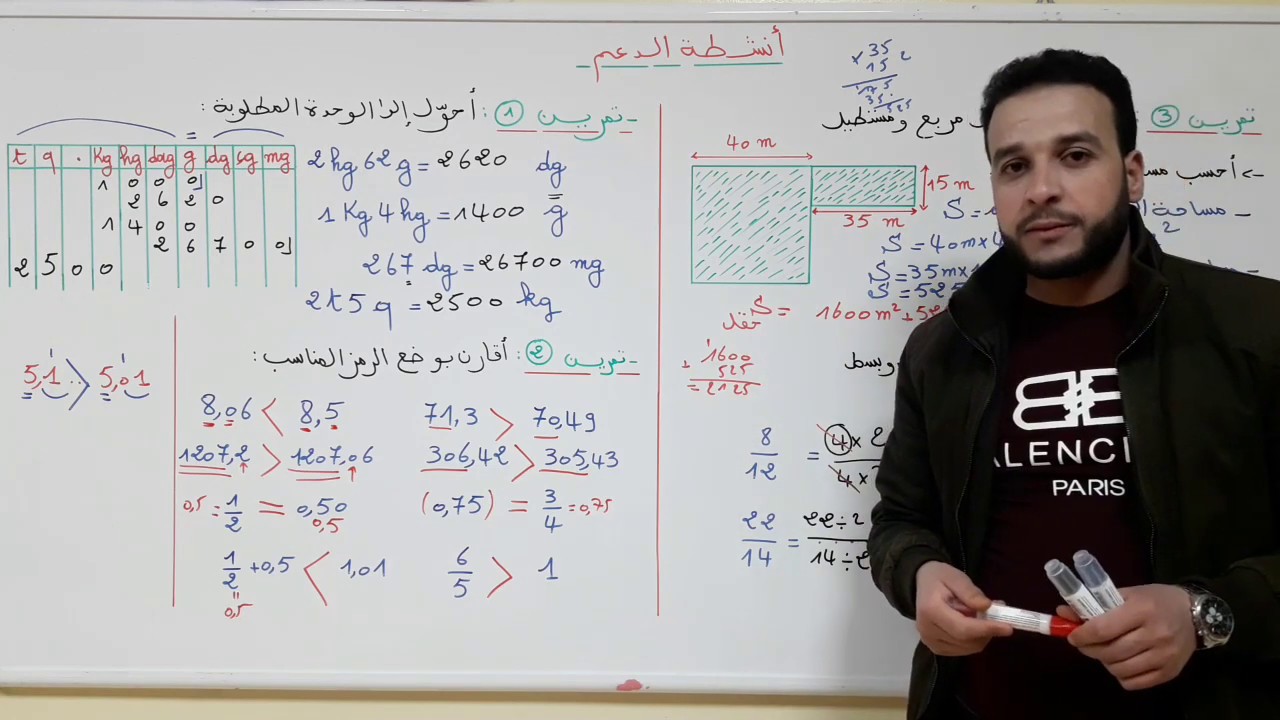 أنشطة الدعم
- تمرين 1 : أحوّل إلى الوحدة المطلوبة :
t q . Kg hg dag g dg cg mg
1 0 0 0
2 6 2 0
1 4 0 0
2 6 7 0 0
2 5 0 0
2 hg 62 g = 2620 dg
1 Kg 4 hg = 1400 g
267 dg = 26700 mg
2 t 5 q = 2500 kg
- تمرين 2 : أقارن بوضع الرمز المناسب :
5,1 > 5,01
8,06 < 8,5
71,3 > 70,49
1207,2 > 1207,06
306,42 > 305,43
0,5 = 1/2 = 0,50
0,5
(0,75) = 3/4 = 0,75
1/2 + 0,5 < 1,01
0,5
6/5 > 1
تمرين 3
مربع ومستطيل
× 35
15
175
35
525
40 m
15 m
35 m
-> أحسب
- مساحة
S =
S = 40m×4
S = 35m×1
S = 525
S = 1600 m² + 52
1600
+ 525
= 2125
8/12 = 4×2/4×
22/14 = 22÷2/14÷2
BB
ALENCI
PARIS